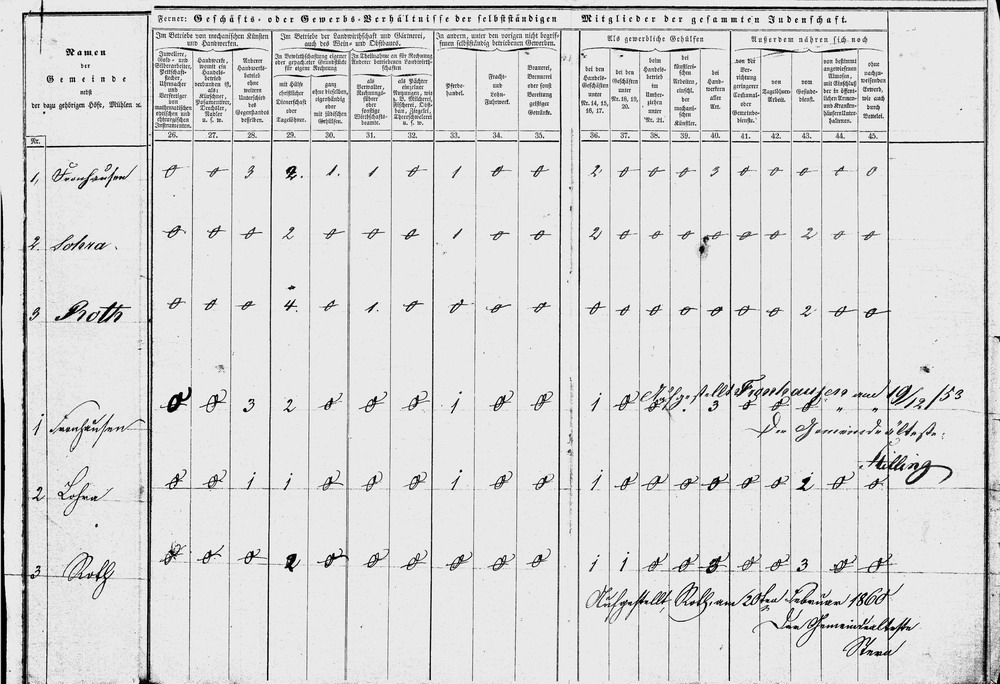 Ferner: Geschäfts- oder Gewerbs-Verhältnisse der selbstständigen Mitglieder der gesammten Judenschaft.
Namen
der
Gemeinde
nebst
der dazu gehörigen Höfe, Mühlen ꝛc.
Nr.
Im Betriebe von mechanischen Künsten
und Handwerken.
Im Betriebe der Landwirthschaft und Gärtnerei,
auch des Wein- und Obstbaues.
In andern, unter den vorigen nicht begriffenen
selbstständig betriebenen Gewerben.
Als gewerbliche Gehülfen
Außerdem nähren sich noch
Juweliere,
Gold- und
Silberarbeiter,
Pettschaftstecher,
Uhrmacher
und
Verfertiger
von
mathematischen
optischen und
chirurgischen
Instrumenten.
Handwerke,
womit ein
Handelsbetrieb
verbunden ist,
als:
Kürschner,
Posamentirer,
Drechsler,
Nadler
u. s. w.
Anderer
Handwerksbetrieb
ohne
weitern
Unterschied
des
Gegenstandes
desselben.
In Bewirthschaftung eigener
oder gepachteter Grundstücke
für eigene Rechnung
mit Hülfe
christlicher
Dienerschaft
oder
Tagelöhner.
ganz
ohne dieselben,
eigenhändig
oder
mit jüdischen
Gehülfen.
In Theilnahme an für Rechnung
Anderer betriebenen Landwirthschaften
als
Verwalter,
Rechnungsführer
oder
sonstige
Wirthschaftsbeamte.
als Pächter
einzelner
Nutzungen, wie
z. B. Milcherei,
Fischerei, Obstbau,
Ziegelei,
Theerschwelerei
u. s. w.
Pferdehandel.
Fracht-
und
Lohn-
Fuhrwerk.
Brauerei,
Brennerei
oder sonst
Bereitung
geistiger
Getränke.
in den
Handels-
Geschäften
unter
Nr. 14, 15,
16, 17.
bei den
Geschäften
unter
Nr. 18, 19,
20.
beim
Handelsbetrieb
im
Umherziehen
unter
Nr. 21.
bei
künstlerischen
Arbeiten,
einschl.
der
mechanischen
Künstler.
bei
Handwerkern
aller
Art.
von der
Verrichtung
geringerer
Ceremonial-
oder
Gemeindedienste.
von
Tagelöhner-
Arbeit.
vom
Gesindedienst.
von bestimmt
angewiesenem
Almosen,
mit Einschluß
der in öffentlichen
Armen-
und Krankenhäusern
Unterhaltenen.
ohne
nachzuweisenden
Erwerb,
wie auch
durch
Bettelei.
26. 27. 28. 29. 30. 31. 32. 33. 34. 35. 36. 37. 38. 39. 40. 41. 42. 43. 44. 45.
1, Fronhausen 0 0 3 2. 1. 1 0 1 0 0 2 0 0 0 3 0 0 0 0 0
2. Lohra. 0 0 0 2 0 0 0 1 0 0 2 0 0 0 0 0 0 2 0 0
3 Roth 0 0 0 4. 0 1. 0 0 0 0 0 0 0 0 0 0 0 2 0 0
Aufgestellt Fronhausen am 19/12/53
1 Fronhausen 0 0 3 2 0 0 0 1 0 0 1 0 0 0 3 0 0 0 " "
Der Gemeindeälteste:
Milling
2 Lohra 0 0 1 1 0 0 0 1 0 0 1 0 0 0 0 0 0 2 0 0
3 Roth 0 0 0 2 0 0 0 0 0 0 1 1 0 0 0 0 0 3 0 0
Aufgestellt Roth, am 20ten Februar 1860
Der Gemeindeälteste
Stern